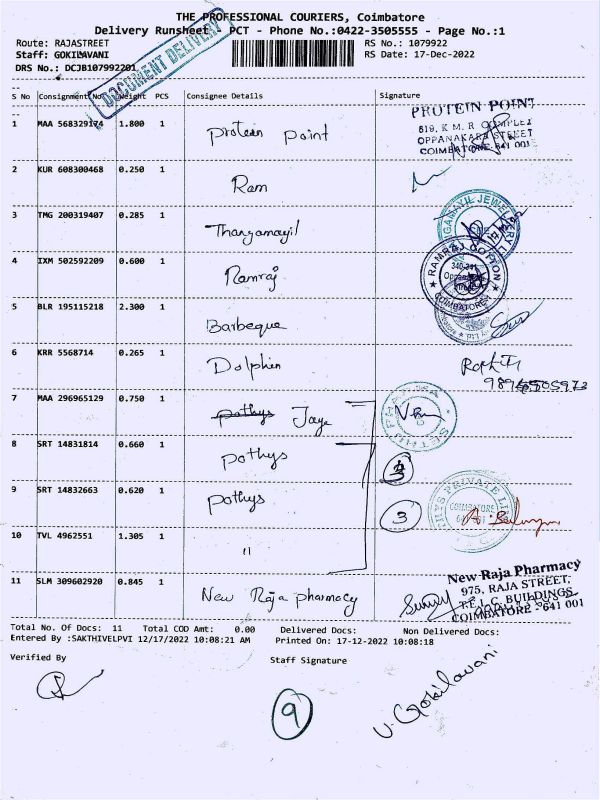 THE PROFESSIONAL COURIERS, Coimbatore
Delivery Runsheet : PCT - Phone No.:0422-3505555 - Page No.:1
Route: RAJASTREET RS No.: 1079922
Staff: GOKILAVANI RS Date: 17-Dec-2022
DRS No.: DCJB107992201
DOCUMENT DELIVERY
S No Consignment No. Weight PCS Consignee Details Signature
1 MAA 568329174 1.800 1 Protein Point
PROTEIN POINT
619, K. M. R. COMPLEX
OPPANAKARA STREET
COIMBATORE 641 001
2 KUR 608300468 0.250 1 Ram
3 TMG 200319407 0.285 1 Thangamayil
4 IXM 502592209 0.600 1 Ramraj
RAMRAJ COTTON
COIMBATORE
5 BLR 195115218 2.300 1 Barbeque
6 KRR 5568714 0.265 1 Dolphin
7 MAA 296965129 0.750 1 pothys Jaye
8 SRT 14831814 0.660 1 pothys
9 SRT 14832663 0.620 1 pothys 3
COIMBATORE
10 TVL 4962551 1.305 1 "
11 SLM 309602920 0.845 1 New Raja pharmacy
New Raja Pharmacy
975, RAJA STREET,
L.I.C. BUILDINGS
COIMBATORE - 641 001
Total No. Of Docs: 11 Total COD Amt: 0.00 Delivered Docs: Non Delivered Docs:
Entered By :SAKTHIVELPVI 12/17/2022 10:08:21 AM Printed On: 17-12-2022 10:08:18
Verified By Staff Signature
9
V. Gokilavani